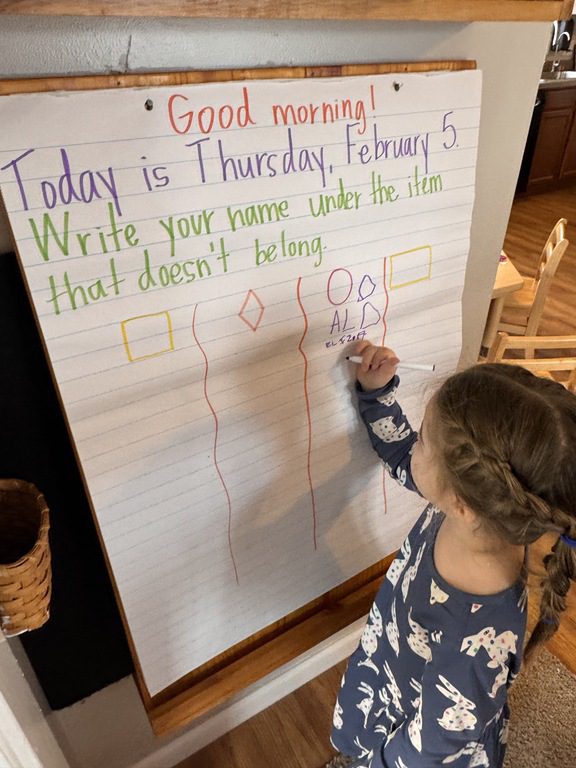 Good morning!
Today is Thursday, February 5.
Write your name under the item
that doesn't belong.